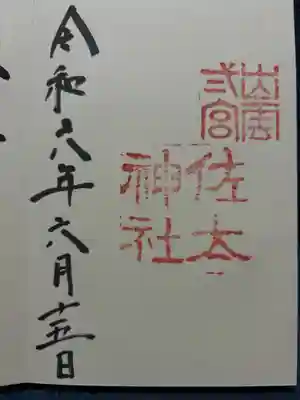 出雲
弍宮
佐太
神社
令和六年六月十五日